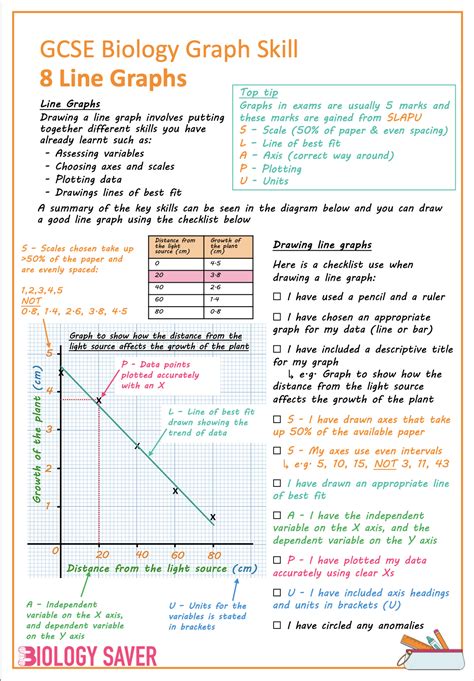 GCSE Biology Graph Skill
8 Line Graphs
Line Graphs
Drawing a line graph involves putting
together different skills you have
already learnt such as:
- Assessing variables
- Choosing axes and scales
- Plotting data
- Drawings lines of best fit
Top tip
Graphs in exams are usually 5 marks and
these marks are gained from SLAPU
S - Scale (50% of paper & even spacing)
L - Line of best fit
A - Axis (correct way around)
P - Plotting
U - Units
A summary of the key skills can be seen in the diagram below and you can draw
a good line graph using the checklist below
S - Scales chosen take up
>50% of the paper and
are evenly spaced:
1,2,3,4,5
NOT
0·8, 1·4, 2·6, 3·8, 4·5
Distance from the light source (cm) Growth of the plant (cm)
0 4·5
20 3·8
40 2·6
60 1·4
80 0·8
Graph to show how the distance from the
light source affects the growth of the plant
P - Data points
plotted accurately
with an X
L - Line of best fit
drawn showing the
trend of data
Growth of the plant (cm)
5
4
3
2
1
0 20 40 60 80
Distance from the light source (cm)
A - Independent
variable on the X axis,
and dependent variable
on the Y axis
U - Units for the
variables is stated
in brackets
Drawing line graphs
Here is a checklist use when
drawing a line graph:
I have used a pencil and a ruler
I have chosen an appropriate
graph for my data (line or bar)
I have included a descriptive title
for my graph
e.g· Graph to show how the
distance from the light source
affects the growth of the plant
S - I have drawn axes that take
up 50% of the available paper
S - My axes use even intervals
e·g· 5, 10, 15, NOT 3, 11, 43
I have drawn an appropriate line
of best fit
A - I have the independent
variable on the X axis, and the
dependent variable on the Y axis
P - I have plotted my data
accurately using clear Xs
U - I have included axis headings
and units in brackets (U)
I have circled any anomalies
BIOLOGY SAVER